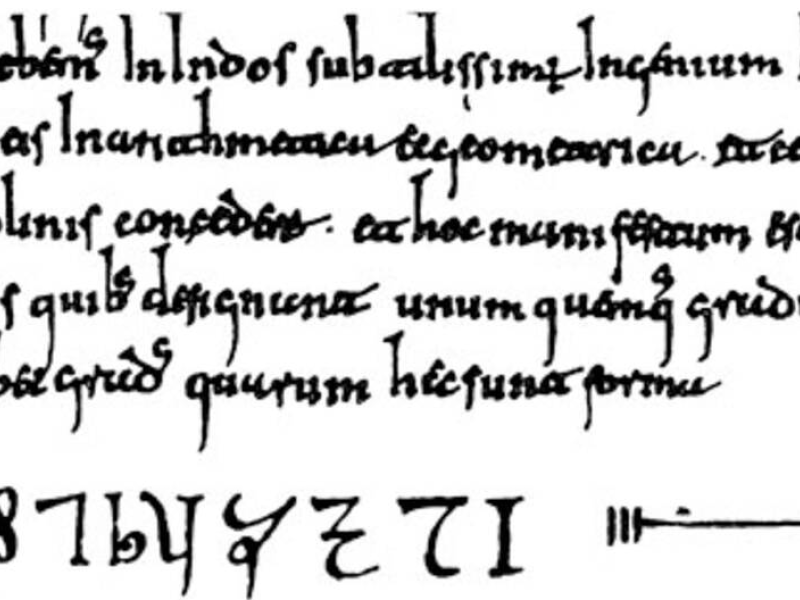 In Indos subtilissimu Ingenium
eis In arithmetica et geometrica. et ce
plinis concedere. et hoc manifestum
s quibs designant unum quemq gradu
bet grads quarum hec sunt forma
8 7 6 5 4 3 2 1